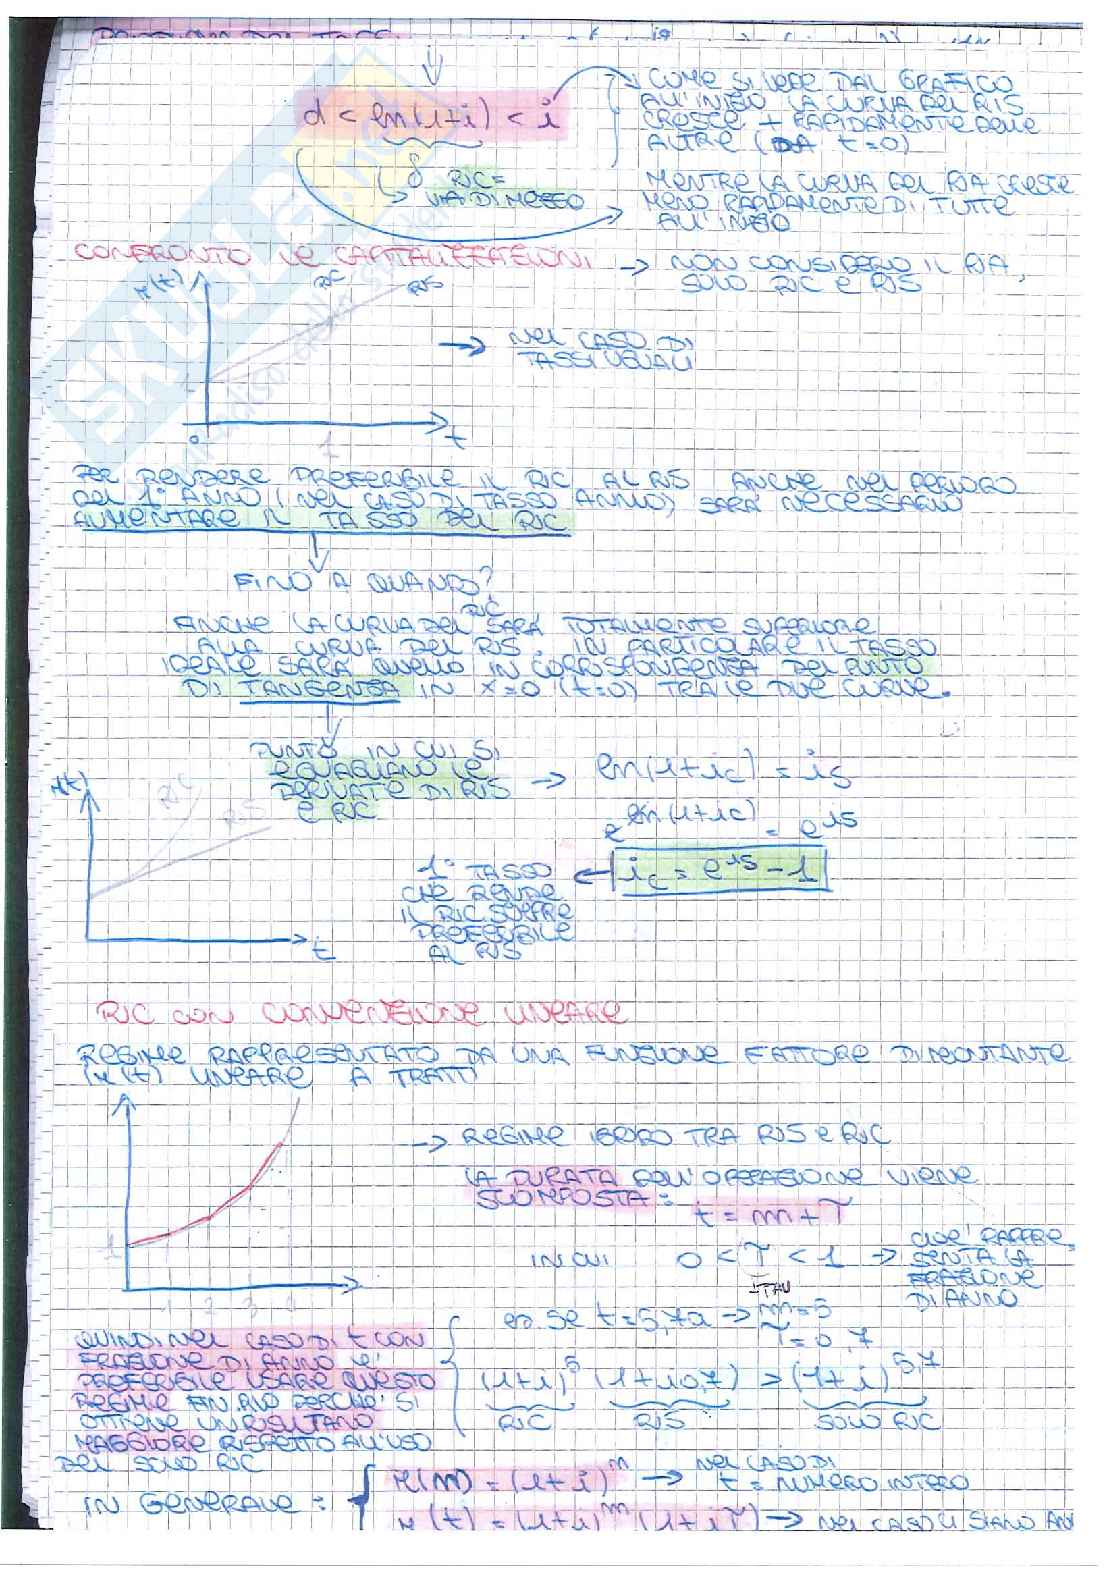 d < ln(1+i) < i
COME SI VEDE DAL GRAFICO
ALL'INIZIO LA CURVA DEL RIS
CRESCE + RAPIDAMENTE DELLE
ALTRE (DA t=0)
δ RIC =
VIA DI MEZZO
MENTRE LA CURVA DEL RIA CRESCE
MENO RAPIDAMENTE DI TUTTE
ALL'INIZIO
CONFRONTO LE CAPITALIZZAZIONI → NON CONSIDERO IL RIA,
SOLO RIC E RIS
r(t)
RIC
RIS
→ NEL CASO DI
TASSI UGUALI
0
1
t
PER RENDERE PREFERIBILE IL RIC AL RIS ANCHE NEL PERIODO
DEL 1° ANNO (NEL CASO DI TASSO ANNUO) SARÀ NECESSARIO
AUMENTARE IL TASSO DEL RIC
FINO A QUANDO?
RIC
ANCHE LA CURVA DEL SARÀ TOTALMENTE SUPERIORE
ALLA CURVA DEL RIS. IN PARTICOLARE IL TASSO
IDEALE SARÀ QUELLO IN CORRISPONDENZA DEL PUNTO
DI TANGENZA IN x=0 (t=0) TRA LE DUE CURVE.
PUNTO IN CUI SI
EGUAGLIANO LE
DERIVATE DI RIS
E RIC
→ ln(1+ic) = is
e^ln(1+ic) = e^is
ic = e^is - 1
r(t)
RIC
RIS
t
1° TASSO
CHE RENDE
IL RIC SEMPRE
PREFERIBILE
AL RIS
RIC CON CONVENZIONE LINEARE
REGIME RAPPRESENTATO DA UNA FUNZIONE FATTORE DI MONTANTE
(r(t)) LINEARE A TRATTI
→ REGIME IBRIDO TRA RIS E RIC
LA DURATA DELL'OPERAZIONE VIENE
SCOMPOSTA:
t = m + τ
IN CUI 0 < τ < 1 → CHE RAPPRE
SENTA LA
FRAZIONE
DI ANNO
TAU
1
1 2 3
es. se t=5,7a → m=5
τ=0,7
QUINDI NEL CASO DI t CON
FRAZIONE DI ANNO È
PREFERIBILE USARE QUESTO
REGIME PERCHÉ SI
OTTIENE UN RISULTATO
MAGGIORE RISPETTO ALL'USO
DEL SOLO RIC
(1+i)^5 (1+i0,7) > (1+i)^5,7
RIC RIS SOLO RIC
IN GENERALE:
r(m) = (1+i)^m → NEL CASO DI
t = NUMERO INTERO
r(t) = (1+i)^m (1+iτ) → NEL CASO CI SIANO